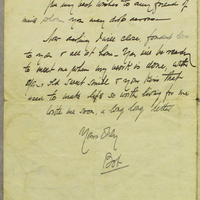 my best wishes to any friend of
mine whom you may
Now darling I will close, fondest love
to you & all at home. You will be ready
to meet me when my work is done, with
old sweet smile & your kiss that
seem to make life so worth living for me
write me soon, a long long letter
Yours Ever
Bob